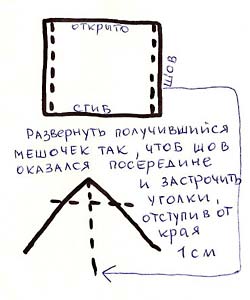 ОТКРЫТО
ШОВ
СГИБ
РАЗВЕРНУТЬ ПОЛУЧИВШИЙСЯ
МЕШОЧЕК ТАК, ЧТОБ ШОВ
ОКАЗАЛСЯ ПОСЕРЕДИНЕ
И ЗАСТРОЧИТЬ
УГОЛКИ,
ОТСТУПИВ ОТ
КРАЯ
1 СМ